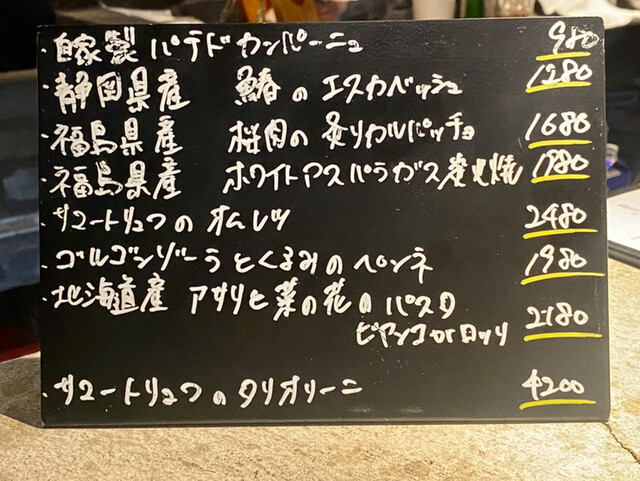 ・自家製 パテドカンパーニュ 980
・静岡県産 鰆のエスカベッシュ 1280
・福島県産 桜肉の炙りカルパッチョ 1680
・福島県産 ホワイトアスパラガス炭火焼 1780
・サマートリュフのオムレツ 2480
・ゴルゴンゾーラとくるみのペンネ 1980
・北海道産 アサリと菜の花のパスタ 2180
ビアンコorロッソ
・サマートリュフのタリオリーニ 4200